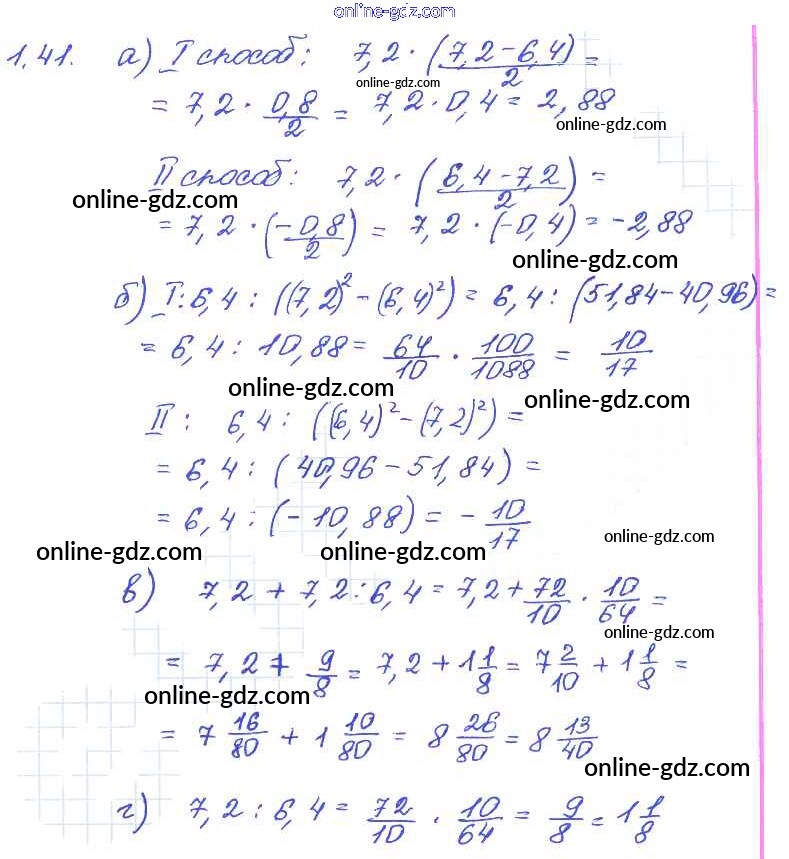 online-gdz.com
1.41. а) I способ: 7,2 · (7,2 − 6,4)/2 =
online-gdz.com
= 7,2 · 0,8/2 = 7,2 · 0,4 = 2,88
online-gdz.com
II способ: 7,2 · (6,4 − 7,2)/2) =
online-gdz.com
= 7,2 · (−0,8/2) = 7,2 · (−0,4) = −2,88
online-gdz.com
б) I: 6,4 : ((7,2)² − (6,4)²) = 6,4 : (51,84 − 40,96) =
= 6,4 : 10,88 = 64/10 · 100/1088 = 10/17
online-gdz.com online-gdz.com
II: 6,4 : ((6,4)² − (7,2)²) =
= 6,4 : (40,96 − 51,84) =
= 6,4 : (−10,88) = −10/17
online-gdz.com
online-gdz.com online-gdz.com
в) 7,2 + 7,2 : 6,4 = 7,2 + 72/10 · 10/64 =
online-gdz.com
= 7,2 + 9/8 = 7,2 + 1 1/8 = 7 2/10 + 1 1/8 =
online-gdz.com
= 7 16/80 + 1 10/80 = 8 26/80 = 8 13/40
online-gdz.com
г) 7,2 : 6,4 = 72/10 · 10/64 = 9/8 = 1 1/8